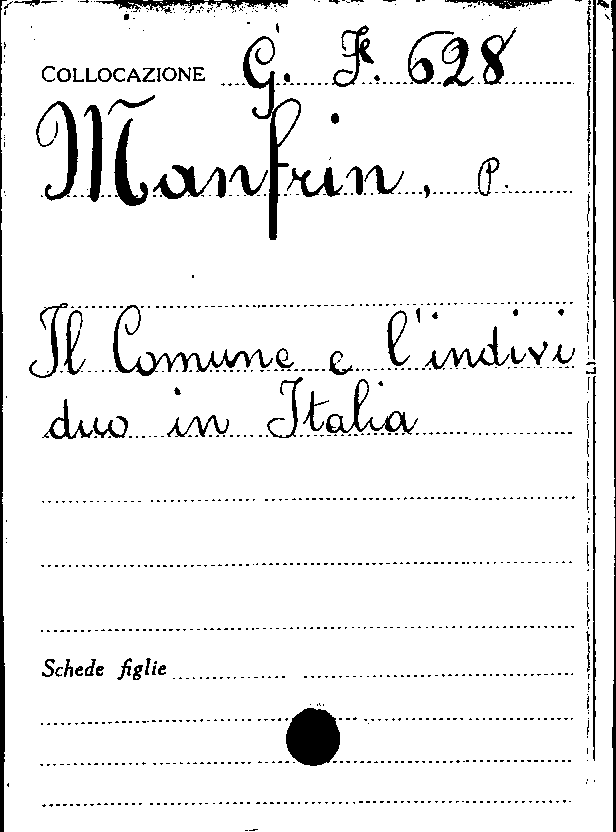 COLLOCAZIONE G. F. 628
Manfrin, P.
Il Comune e l'indivi
duo in Italia
Schede figlie